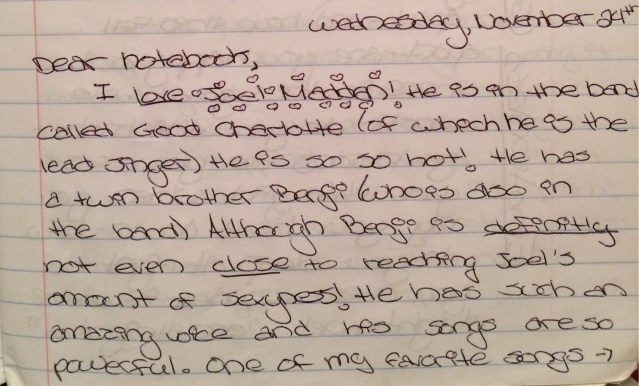 Wednesday, November 24th
Dear notebook,
I love Joel Madden! He is in the band
called Good Charlotte (of which he is the
lead singer) He is so so hot! He has
a twin brother Benji (who is also in
the band) Although Benji is definitly
not even close to reaching Joel's
amount of sexyness! He has such an
amazing voice and his songs are so
powerful. One of my favorite songs →